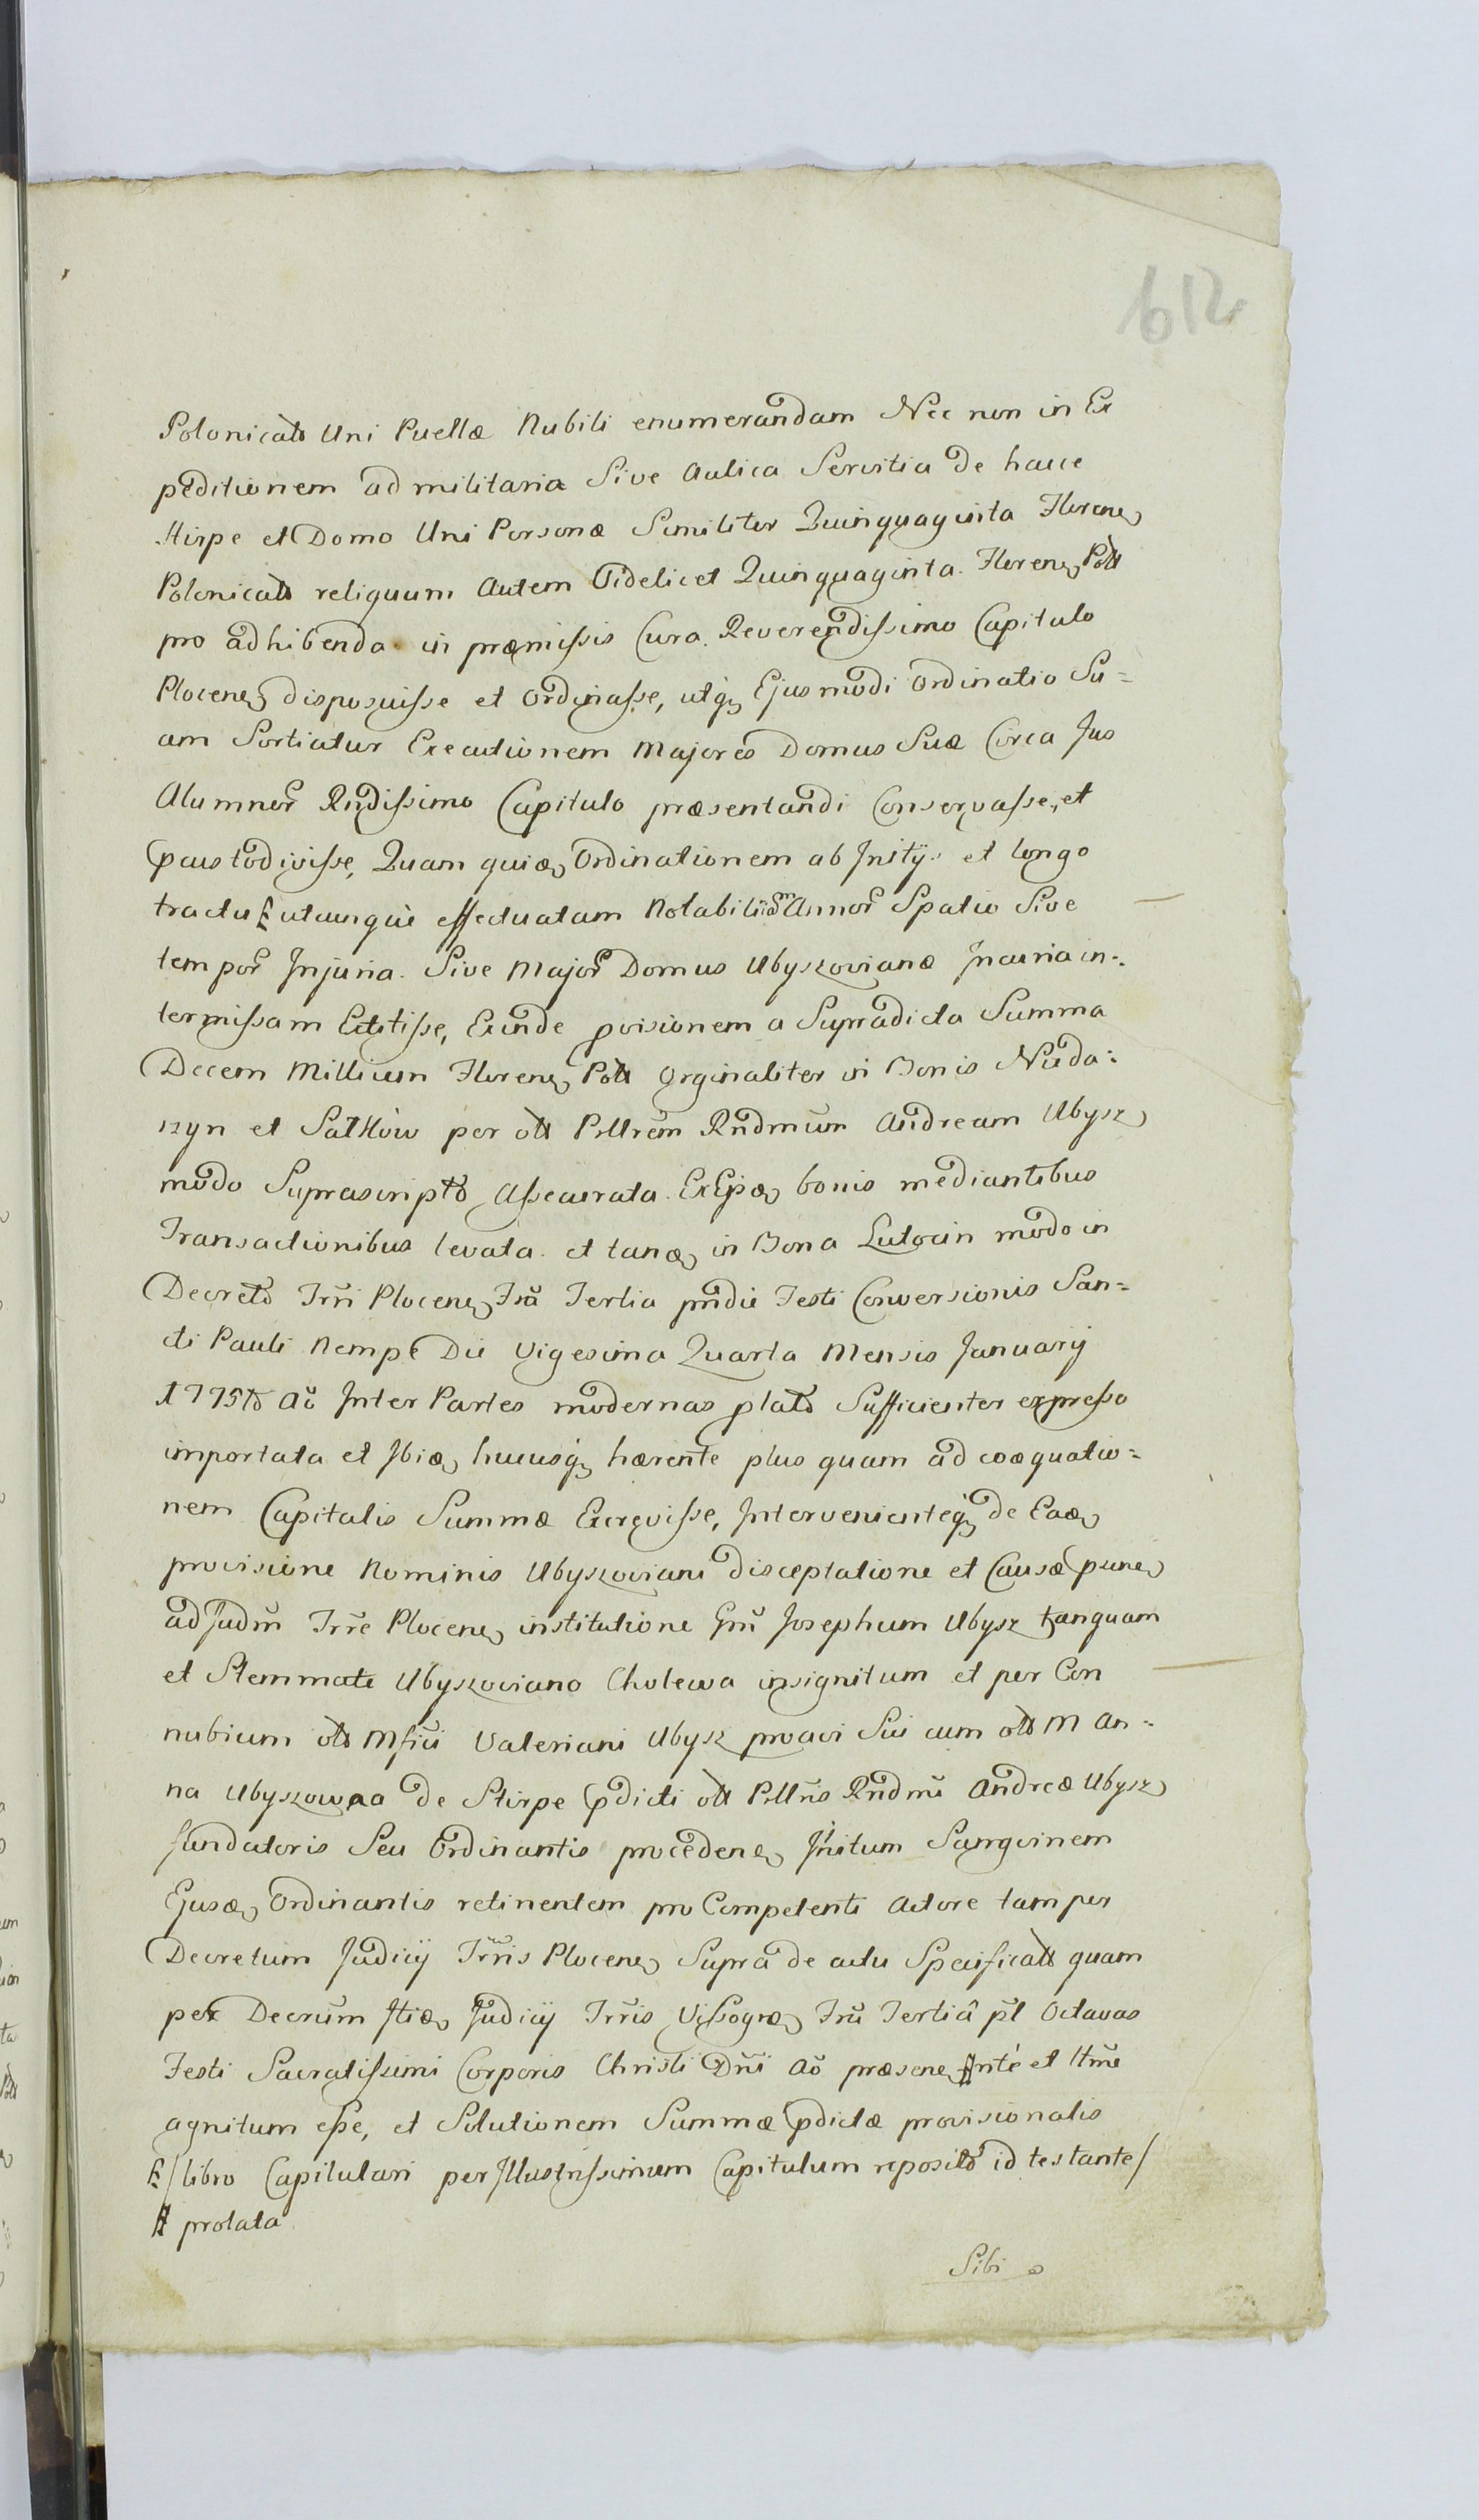 612
Polonicalt Uni Puellæ Nubili enumerandam Nec non in Ex
peditionem ad militaria Sive Aulica Servitia de hacce
Stirpe et Domo Uni Personæ Similiter Quinquaginta Floren
Polonicalt reliquum Autem Videlicet Quinquaginta Floren Poll
pro adhibenda in præmissis Cura Reverendissimo Capitulo
Plocen disposuisse et Ordinasse, utq Ejusmodi Ordinatio Su=
am Sortiatur Executionem Majores Domus Suæ Circa Jus
Alumnor Rndissimo Capitulo præsentandi Conservasse, et
pcustodivisse, Quam quidē Ordinationem ab Initijs et longo
tractu utcunque effectuatam Notabilium Annor Spatio Sive
tempor Injuria Sive Major Domus Ubyszovianæ Incuria in=
termissam Extitisse, Exinde pvisionem a Supradicta Summa
Decem Millium Floren Poll Orginaliter in Bonis Nada=
rzyn et Satkow per olt Pllrem Rndmum Andream Ubysz
modo Suprascripto Assecurata Ex Ijsdē bonis mediantibus
Transactionibus levata et tandē in Bona Lutocin modo in
Decreto Trri Plocen Fra Tertia pridie Festi Conversionis San=
cti Pauli Nempe Die Vigesima Quarta Mensis January
1775to Ao Inter Partes modernas plato Sufficienter expresso
importata et Ibidē hucusq hærente plus quam ad coæquatio=
nem Capitalis Summæ Excrevisse, Intervenienteq de Eadē
provisione Nominis Ubyszoviani disceptatione et Causæ psen
ad Judm Trre Plocen institutione Gm Josephum Ubysz tanquam
et Stemmate Ubyszoviano Cholewa insignitum et per Con
nubium olt Mfici Valeriani Ubysz proavi Sui cum olt M An=
na Ubyszowna de Stirpe pdicti olt Pllris Rndmi Andreæ Ubysz
fundatoris Seu Ordinantis proceden Initum Sangvinem
Ejusdē Ordinantis retinentem pro Competenti Actore tam per
Decretum Judicij Trris Plocen Supra de actu Specificalt quam
per Decrum Judicij Trris Vissogr Fra Tertiâ pt Octavas
Festi Sacratissimi Corporis Christi Dni Ao præsen et
agnitum esse, et Solutionem Summæ pdictæ provisionalis
libro Capitulari per Illustrissimum Capitulum reposito id testante/
prolata
Sibi